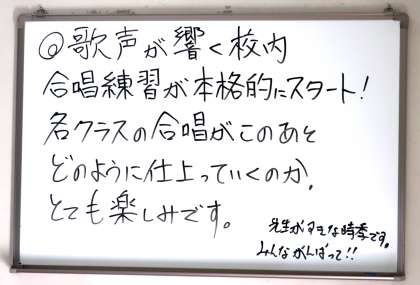 ◎歌声が響く校内
合唱練習が本格的にスタート!
各クラスの合唱がこのあと
どのように仕上っていくのか、
とても楽しみです。
先生がすきな時季です。
みんながんばって!!